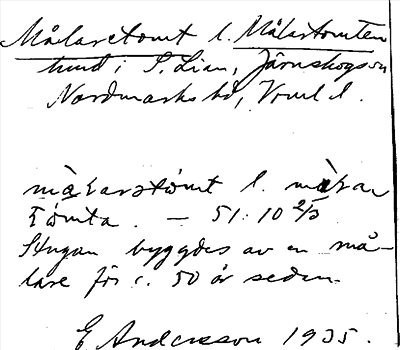 Målaretomt l. Målartomten
hmd i S. Lian, Järnskogs sn
Nordmarks hd, Vrml.
màḷarətòmt l. màḷar
tòmta. — 51:10 2/3
Stugan byggdes av en må-
lare för c. 50 år sedan.
E Andersson 1935.